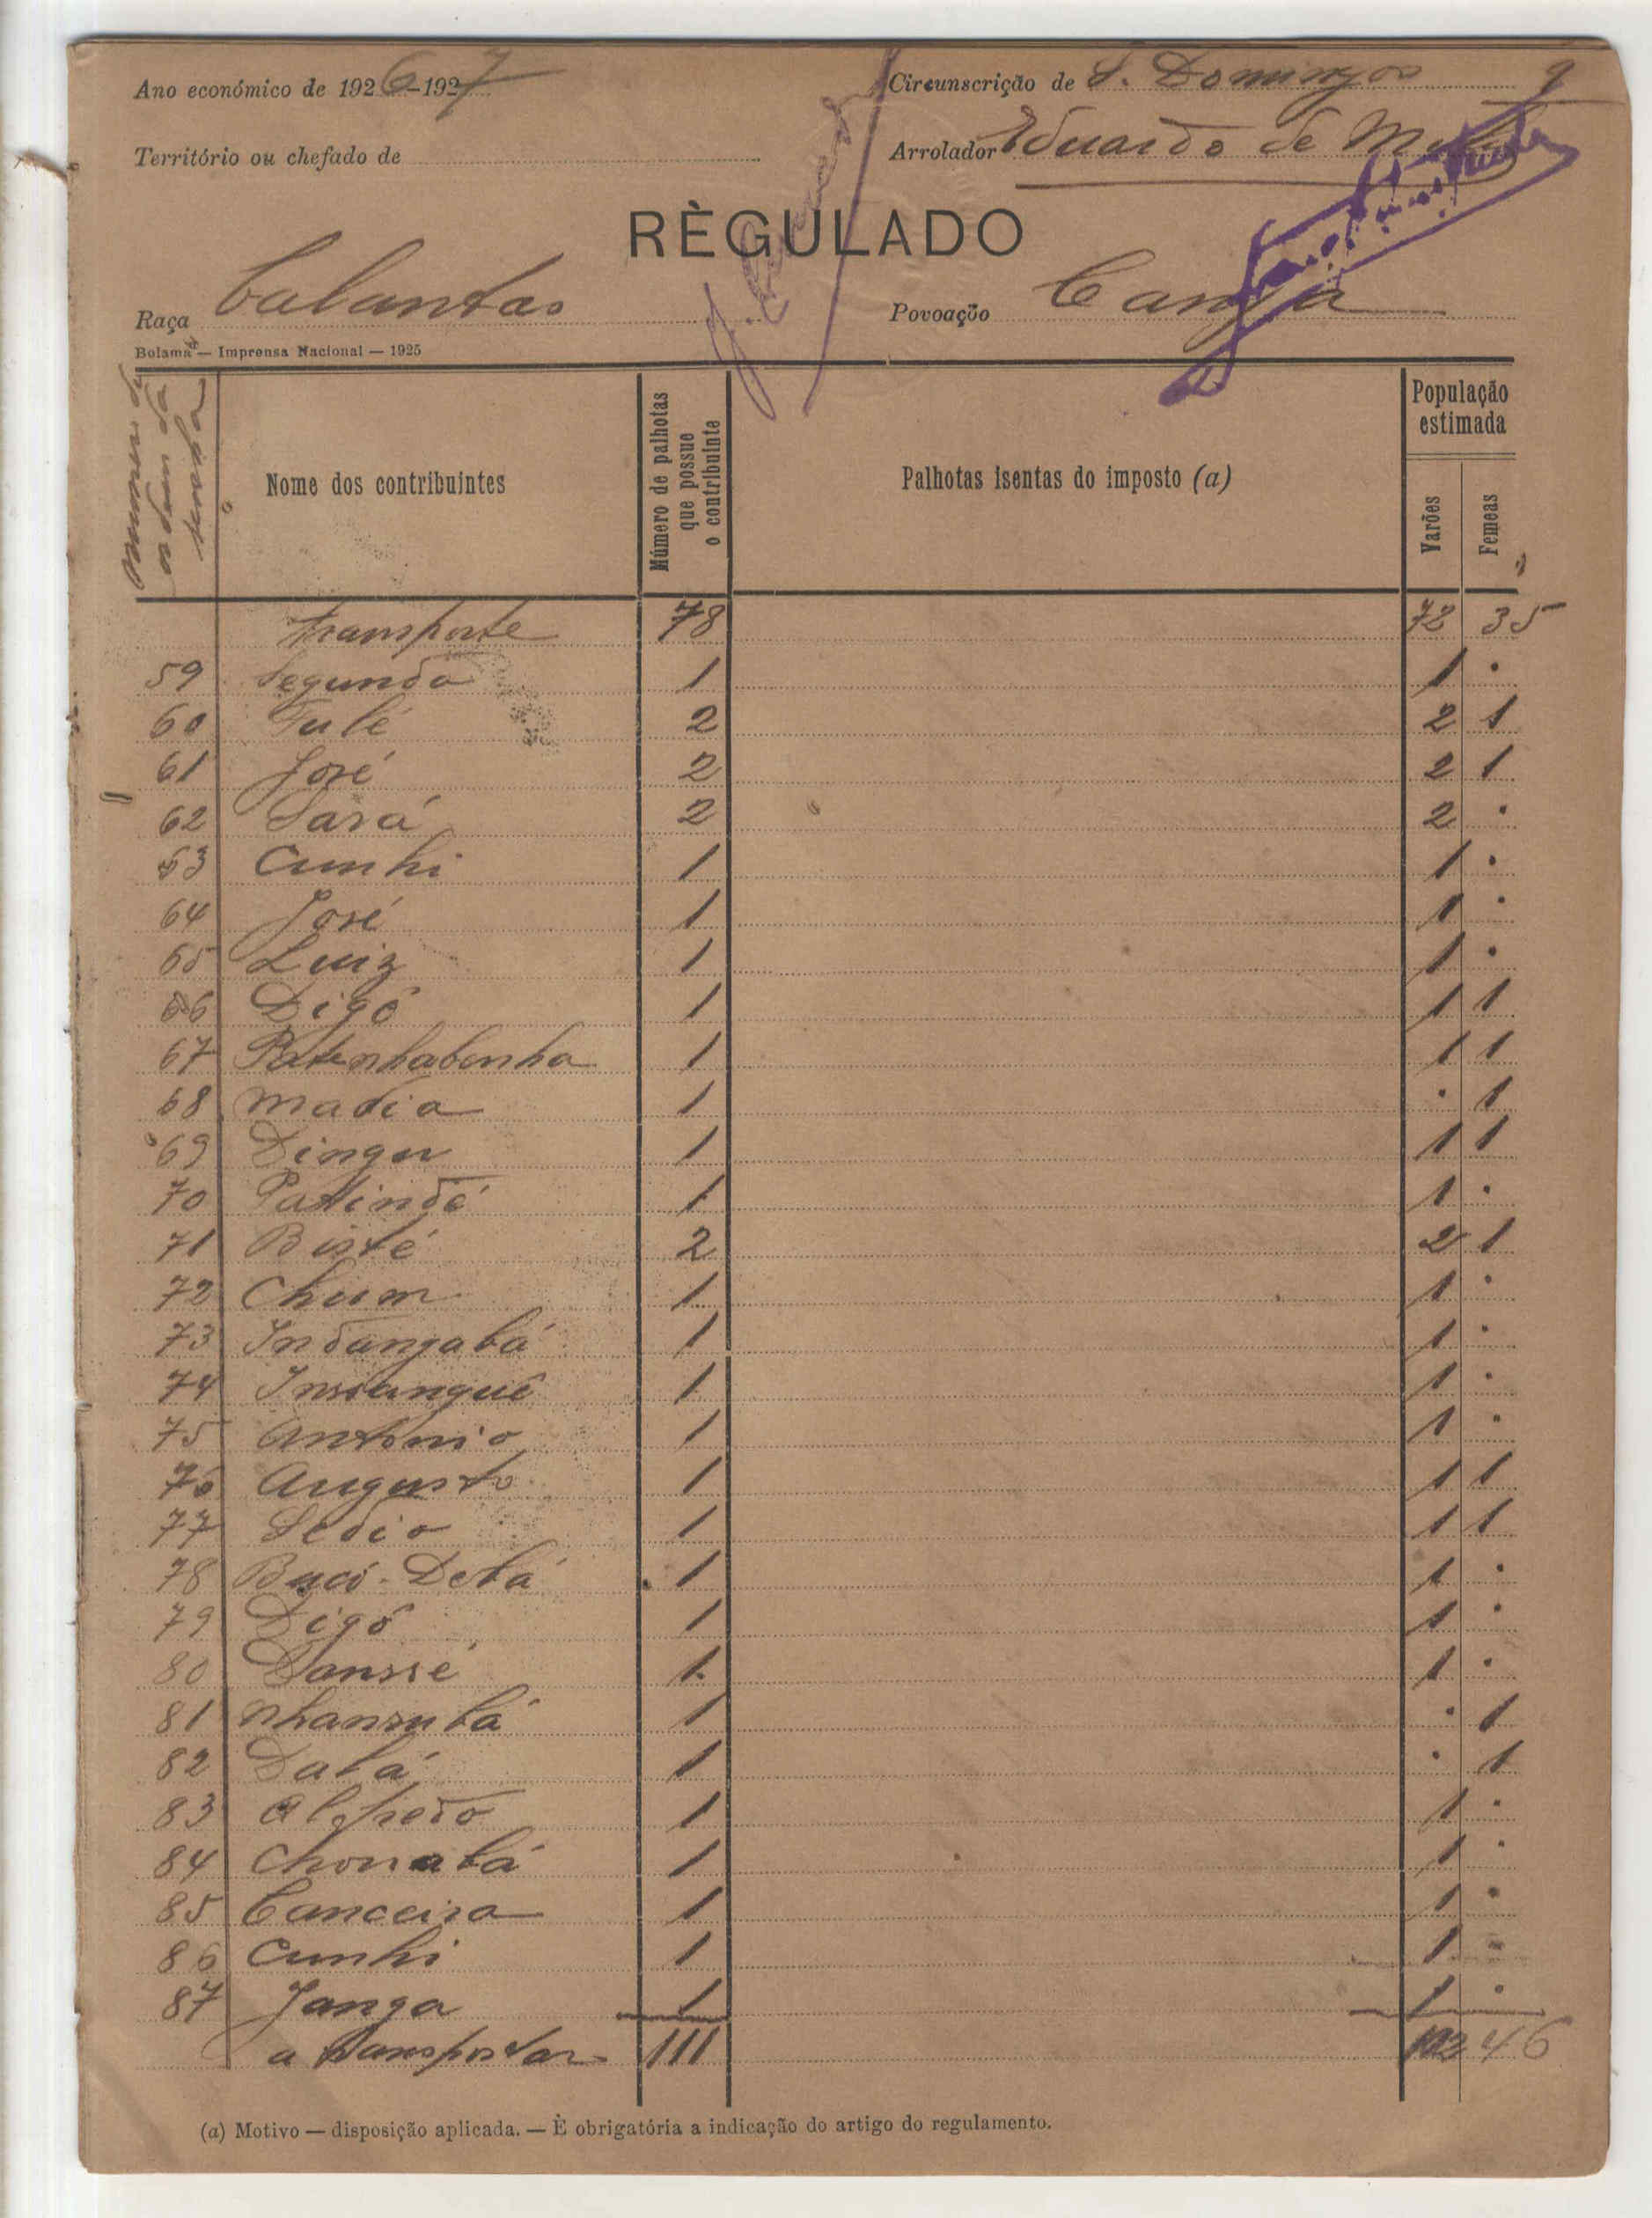 Ano económico de 1926-1927
Circunscrição de S. Domingos 9
Território ou chefado de
Arrolador Eduardo de
RÈGULADO
Raça Balantas
Povoação
Bolama — Imprensa Nacional — 1925
Nome dos contribuintes
Número de palhotas que possue o contribuinte
Palhotas isentas do imposto (a)
População estimada
Varões
Femeas
Transporte 78 78 35
59 Segundo 1 1 .
60 Tulé 2 2 1
61 José 2 2 1
62 Sará 2 2 .
63 Cunhi 1 1 .
64 José 1 1 .
65 Luiz 1 1 .
66 Digó 1 1 1
67 1 1 1
68 Madia 1 . 1
69 Dingu 1 1 1
70 Patindé 1 1 .
71 Bisté 2 2 1
72 Chum 1 1 .
73 Indangabá 1 1 .
74 1 1 .
75 Antonio 1 1 .
76 Augusto 1 1 1
77 Sedio 1 1 1
78 1 1 .
79 Digó 1 1 .
80 Danssé 1 1 .
81 1 . 1
82 1 . 1
83 Alfredo 1 1 .
84 1 1 .
85 Canceira 1 1 .
86 Cunhi 1 1 .
87 Janga 1 1 .
a transportar 111 46
(a) Motivo — disposição aplicada. — È obrigatória a indicação do artigo do regulamento.